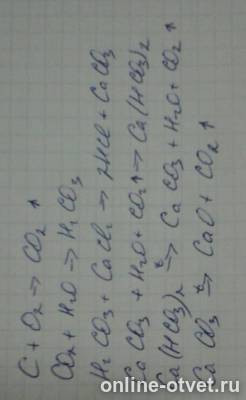 C + O2 → CO2 ↑
CO2 + H2O → H2CO3
H2CO3 + CaCl2 → 2HCl + CaCO3
CaCO3 + H2O + CO2↑ → Ca(HCO3)2
Ca(HCO3)2 →t CaCO3 + H2O + CO2 ↑
CaCO3 →t CaO + CO2 ↑
online-otvet.ru